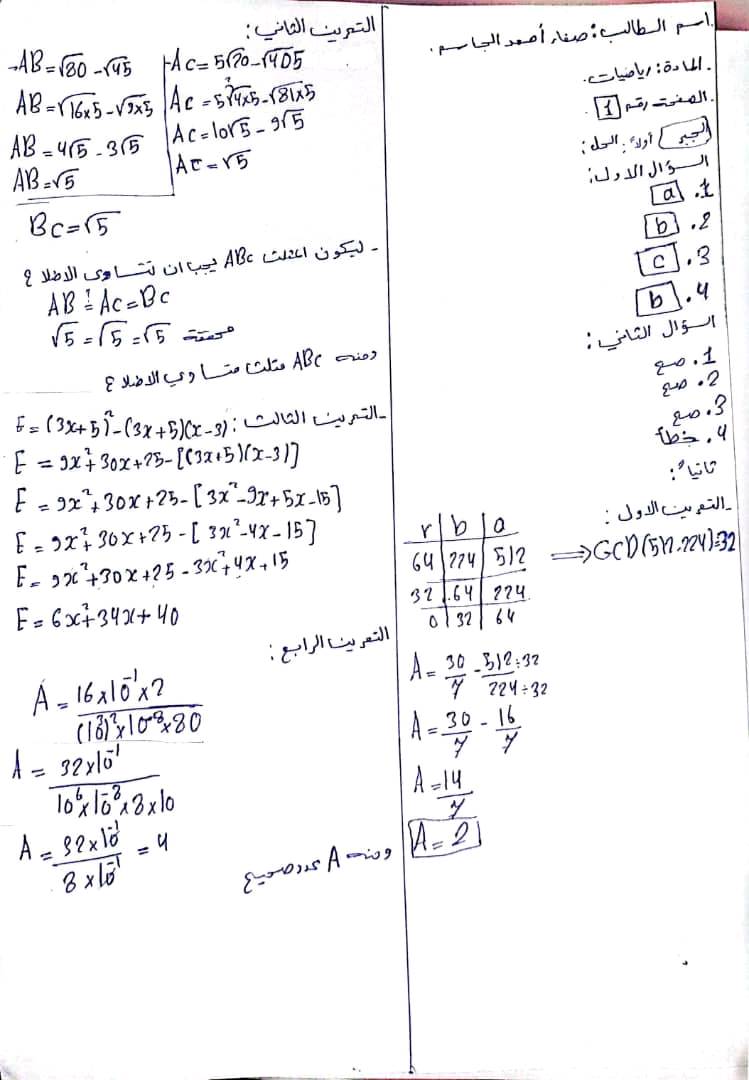 اسم الطالب: صفاء أحمد الجاسم.
المادة: رياضيات.
الصفحة رقم 1.
الجبر أولاً: الحل:
السؤال الاول:
1. a
2. b
3. c
4. b
السؤال الثاني:
1. صح
2. صح
3. صح
4. خطأ
ثانياً:
التمرين الاول:
r | b | a
64 | 224 | 512 ⟹ GCD(512.224)=32
32 | 64 | 224
0 | 32 | 64
A = 30/7 - 512÷32/224÷32
A = 30/7 - 16/7
A = 14/7
A = 2
التمرين الثاني:
AB = √80 - √45
AB = √16x5 - √9x5
AB = 4√5 - 3√5
AB = √5
Ac = 5√20 - √405
Ac = 5√4x5 - √81x5
Ac = 10√5 - 9√5
Ac = √5
Bc = √5
- ليكون المثلث ABc يجب ان تتساوى الاضلاع
AB ≟ Ac = Bc
√5 = √5 = √5 محققة
ومنه ABc مثلث متساوي الاضلاع
- التمرين الثالث: E = (3x+5)² - (3x+5)(x-3)
E = 9x² + 30x + 25 - [(3x+5)(x-3)]
E = 9x² + 30x + 25 - [3x² - 9x + 5x - 15]
E = 9x² + 30x + 25 - [3x² - 4x - 15]
E = 9x² + 30x + 25 - 3x² + 4x + 15
E = 6x² + 34x + 40
التمرين الرابع:
A = 16x10⁻¹x2/(10³)²x10⁻⁸x80
A = 32x10⁻¹/10⁶x10⁻⁸x8x10
A = 32x10⁻¹/8x10⁻¹ = 4
ومنه A عدد صحيح